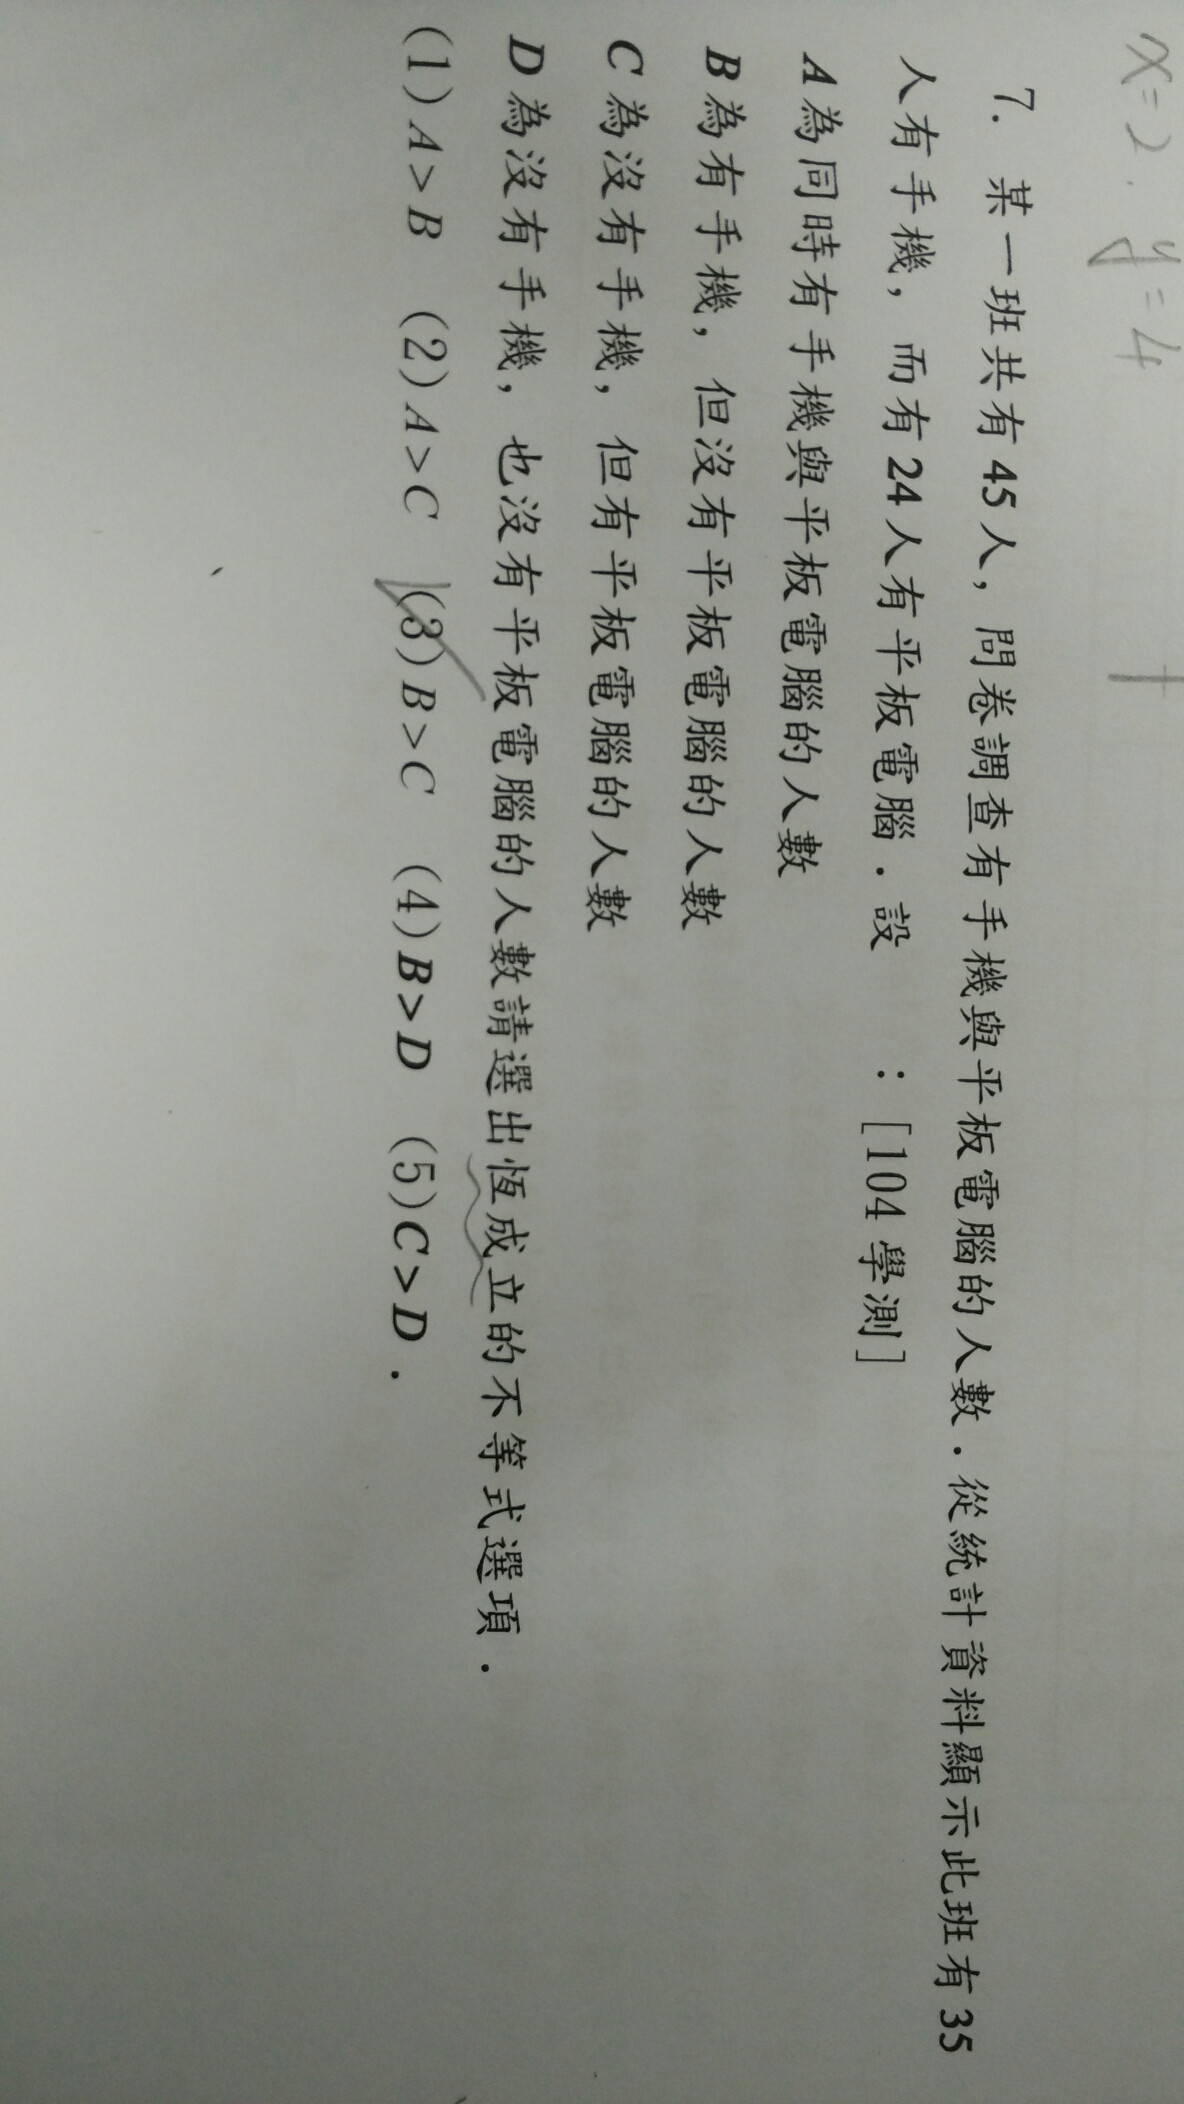 x=2. y=4
7. 某一班共有45人，問卷調查有手機與平板電腦的人數．從統計資料顯示此班有35
人有手機，而有24人有平板電腦．設 ：[104學測]
A為同時有手機與平板電腦的人數
B為有手機，但沒有平板電腦的人數
C為沒有手機，但有平板電腦的人數
D為沒有手機，也沒有平板電腦的人數請選出恆成立的不等式選項．
(1)A>B (2)A>C (3)B>C (4)B>D (5)C>D．